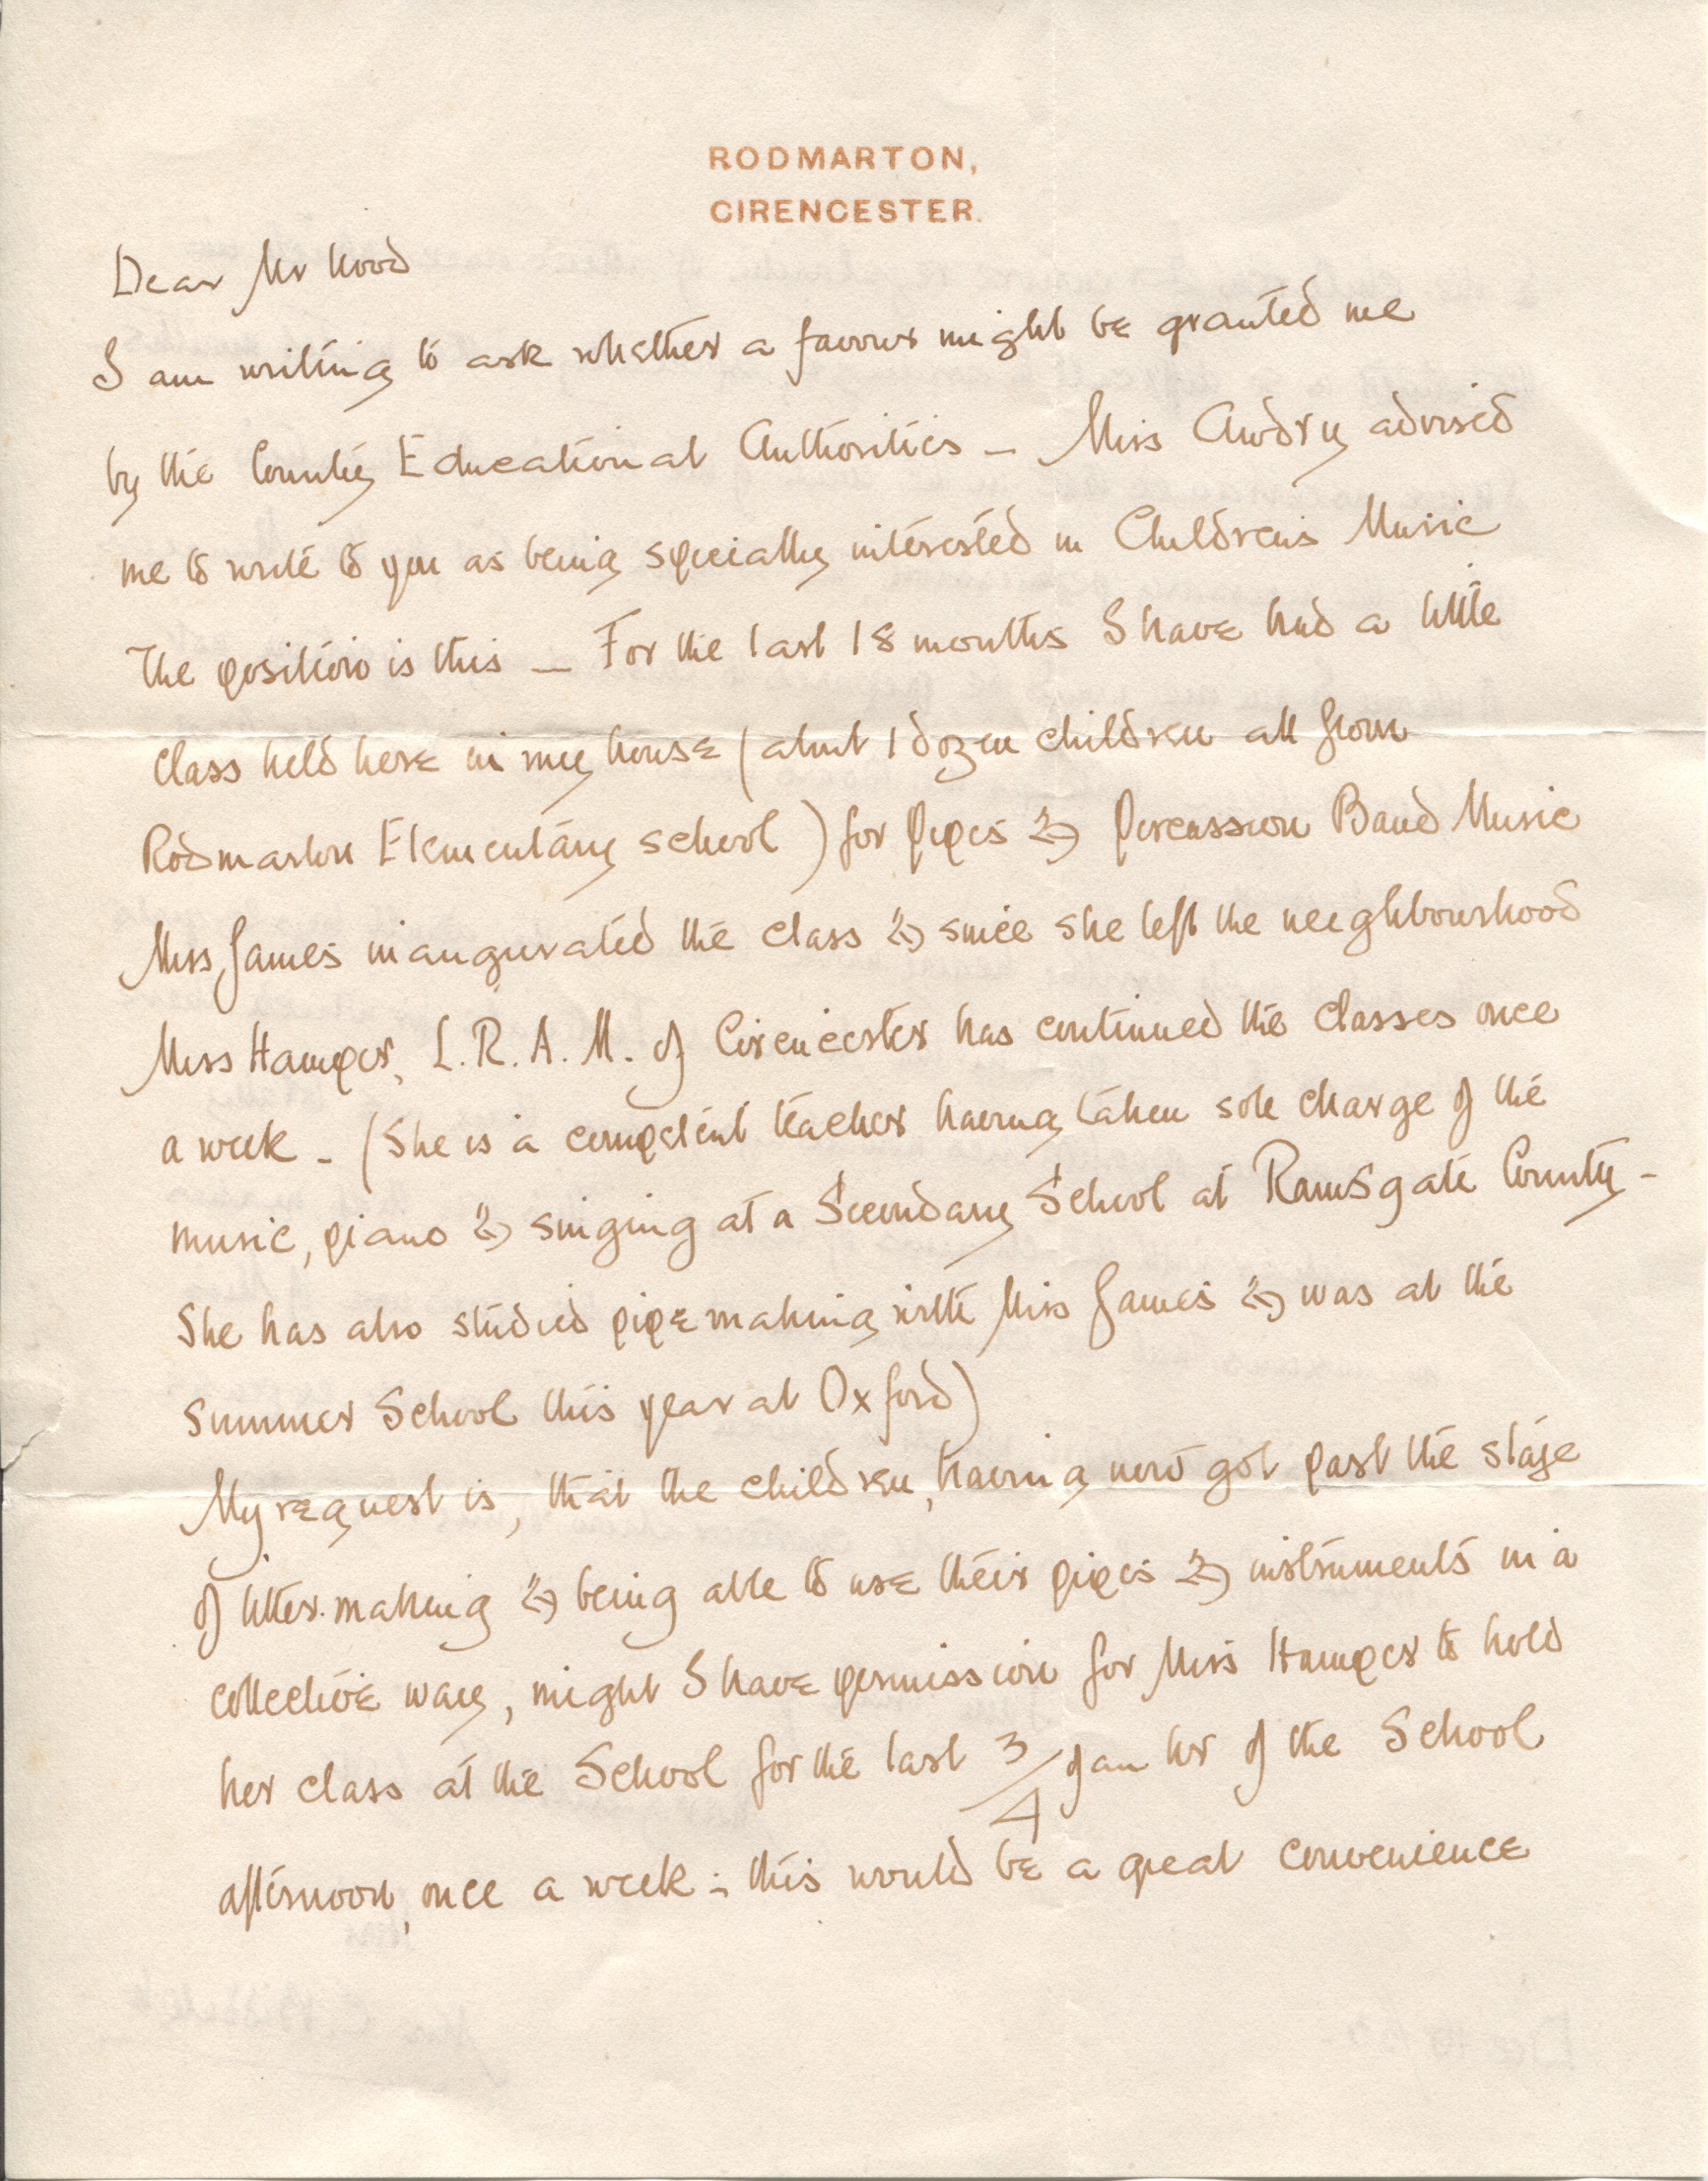 RODMARTON,
CIRENCESTER.
Dear Mr Wood
I am writing to ask whether a favour might be granted me
by the County Educational Authorities – Miss Awdry advised
me to write to you as being specially interested in Children's Music
The position is this – For the last 18 months I have had a little
class held here in my house (about 1 dozen children all from
Rodmarton Elementary school) for Pipes & Percussion Band Music
Miss James inaugurated the class & since she left the neighbourhood
Miss Hamper, L.R.A.M. of Cirencester has continued the classes once
a week – (She is a competent teacher having taken sole charge of the
music, piano & singing at a Secondary School at Ramsgate County –
She has also studied pipe making with Miss James & was at the
Summer School this year at Oxford)
My request is, that the children, having now got past the stage
of litter-making & being able to use their pipes & instruments in a
collective way, might I have permission for Miss Hamper to hold
her class at the School for the last 3/4 of an hr of the School
afternoon, once a week; this would be a great convenience